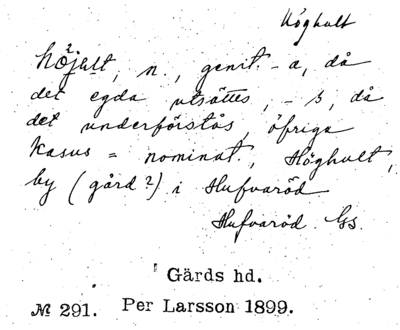 Höghult
höjult, n., genit. -a, då
det egda utsättes, -s, då
det underförstås, öfriga
Kasus = nominat., Höghult,
by (gård?) i Hufvaröd
Hufvaröd Gs.
Gärds hd.
№ 291. Per Larsson 1899.